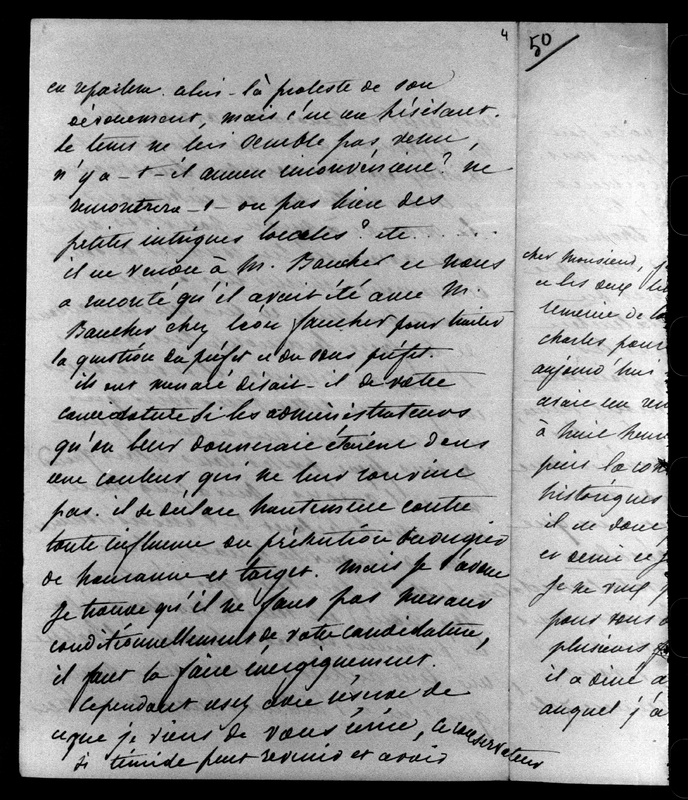 4
en reparlera. alis-là proteste de son
dévouement, mais c'en un hésitant.
le tems ne lui semble pas venu,
n'y a-t-il aucun inconvénient? ne
rencontrera-t-on pas bien des
petites intrigues locales? etc.....
il en venu à M. Baucher et nous
a raconté qu'il avait été avec M.
Baucher chez Léon faucher pour traiter
la question du préfet et du sous préfet.
ils ont menacé disait-il de votre
candidature si les administrateurs
qu'on leur donnerait étaient dans
une couleur qui ne leur convint
pas. il se déclare hautement contre
toute influence ou prétention
de et target. mais je l'avoue
je trouve qu'il ne faut pas menacer
conditionnellement de votre candidature,
il faut la faire énergiquement.
Cependant usez avec réserve de
ce que je viens de vous écrire, ce conservateur
si timide peut revenir et avoir
50
cher Monsieur, j
et les deux
charles pour
aujourd'hui
avaie un ren
à huit heur
puis la con
historiques
il en donc
et demie ce j
je ne veux
pour vous
plusieurs
il a diné a
auquel j'a